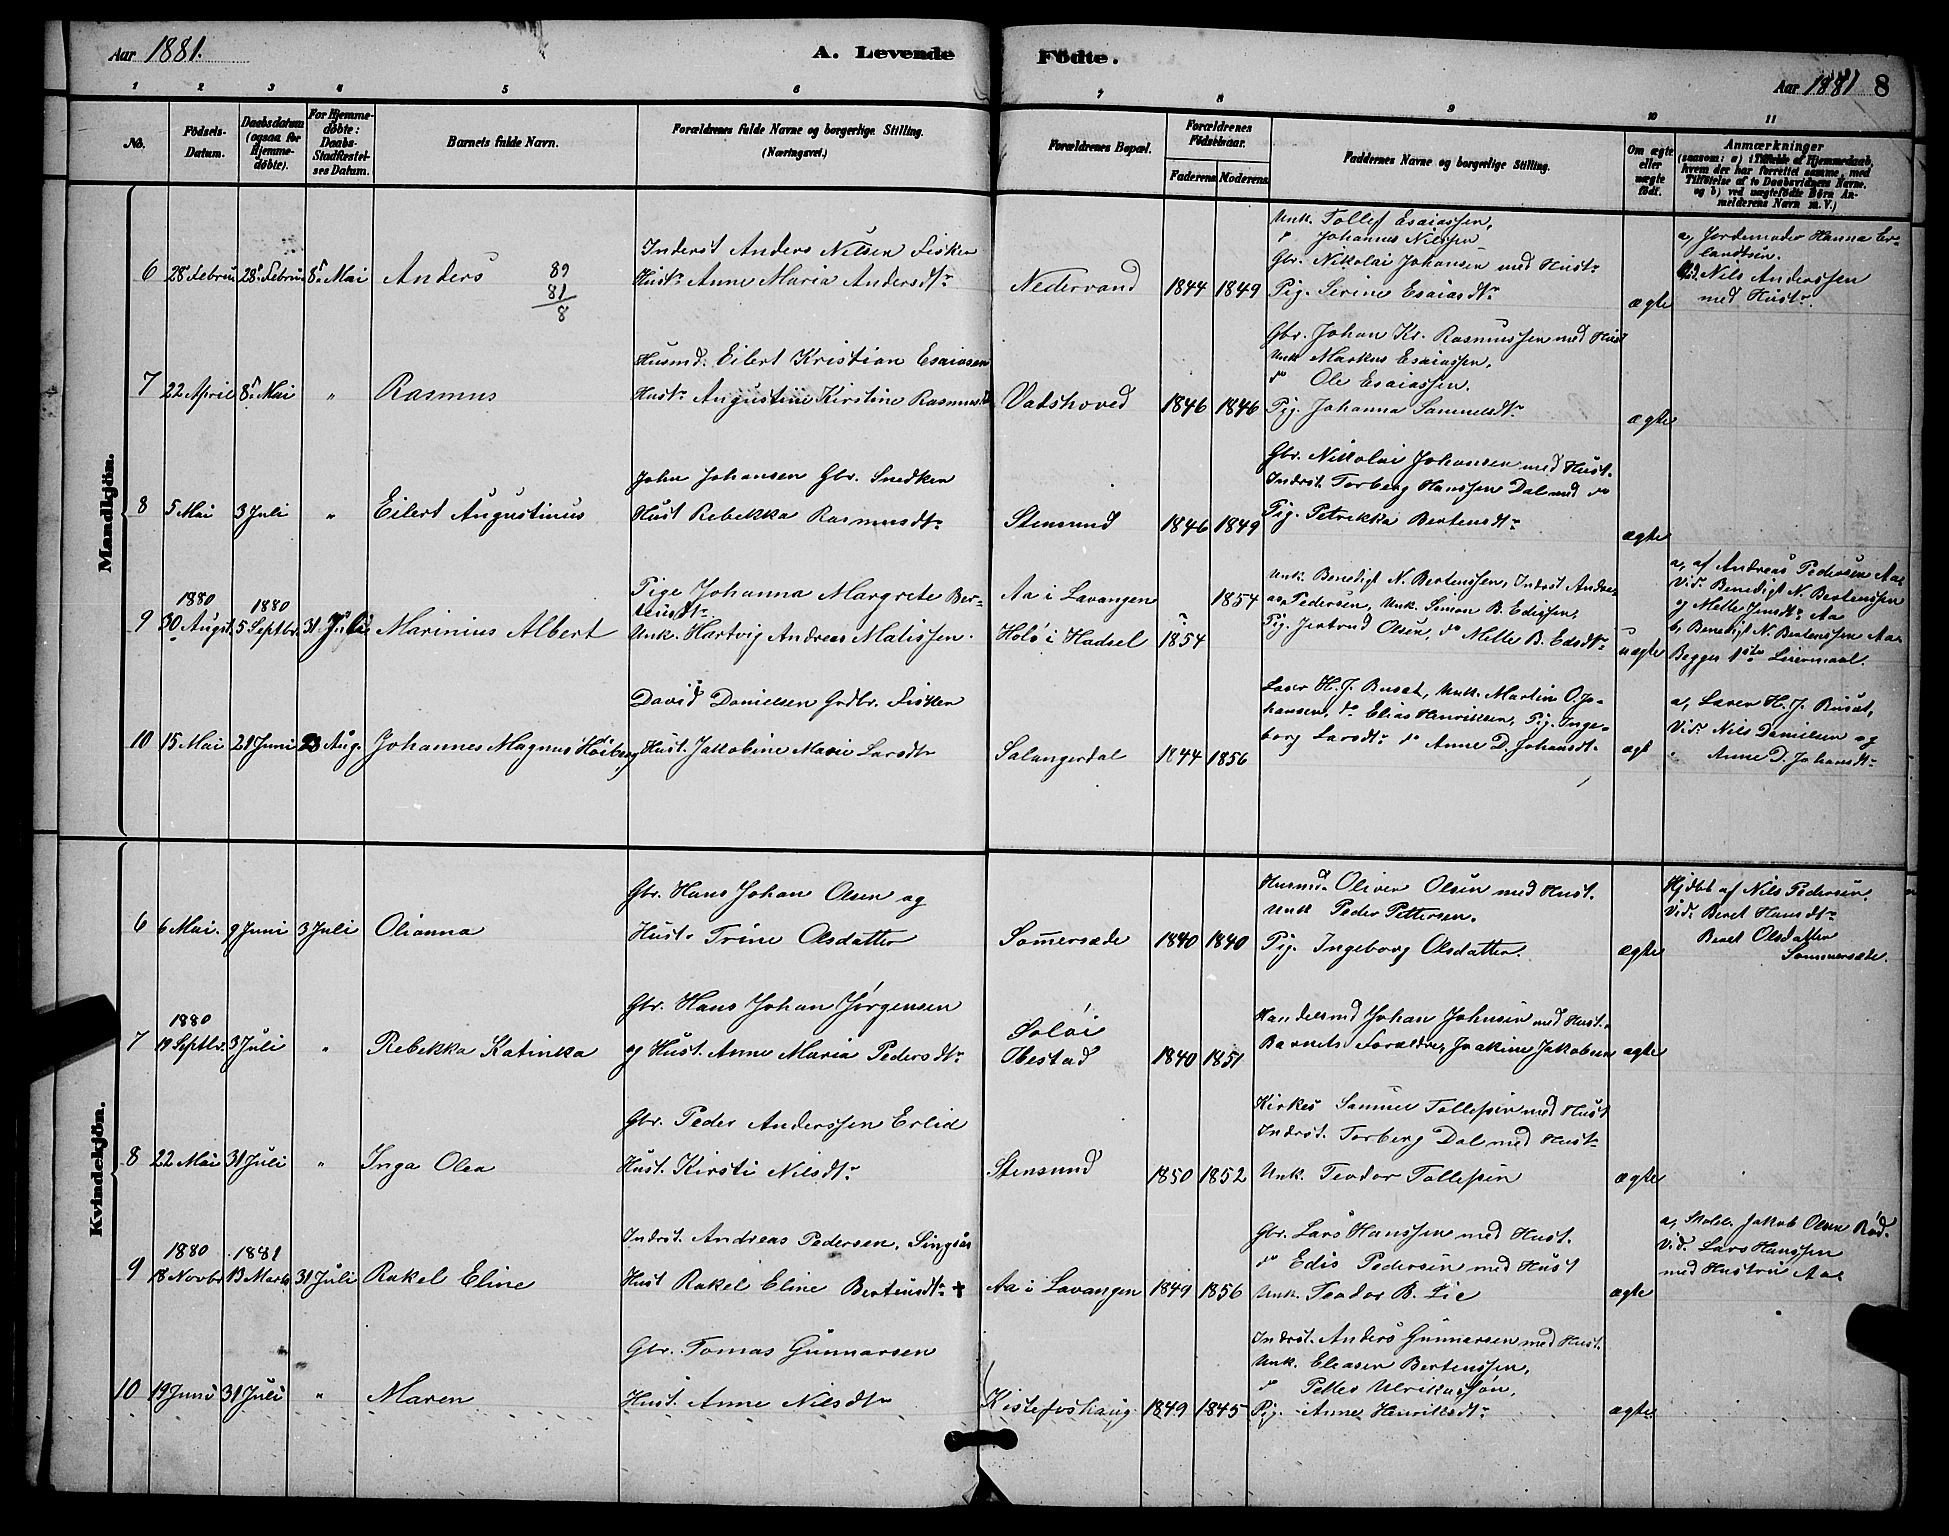 Aar 1881.
A. Levende
Födte.
Aar 1881
8
1 2 3 4 5 6 7 8 9 10 11
No.
Födsels-
Datum.
Daabsdatum
(ogsaa for
Hjemme-
döbte).
For Hjemme-
döbte:
Daabs-
Stadfæstel-
ses Datum.
Barnets fulde Navn.
Forældrenes fulde Navne og borgerlige Stilling.
(Næringsvei.)
Forældrenes Bopæl.
Forældrenes
Födselsaar.
Faderens. Moderens.
Faddernes Navne og borgerlige Stilling.
Om ægte
eller
uægte
födt.
Anmærkninger
(saasom: a) i Tilfælde af Hjemmedaab,
hvem der har forrettet samme, med
Tilföielse af to Daabsvidners Navne,
og b) ved uægtefödte Börn An-
melderens Navn m. V.)
Mandkjön.
6 28 Februar 28 Februar 8 Mai Anders
89
81/8
Inderst Anders Nilsen Fisker
Hustr Anne Maria Andersdtr
Nedervand 1844 1849
Unk. Tollef Esaiassen,
do Johannes Nilssen
Gbr. Nikolai Johansen med Hustr
Pig. Serine Esaiasdtr
ægte
a, Jordemoder Hanna Er-
landsen.
Vid. Nils Anderssen
med Hustr.
7 22 April 8 Mai " Rasmus
Husmd. Eilert Kristian Esaiasen
Hustr Augustine Kirstine Rasmusdt
Vatshoved 1846 1846
Gbr. Johan Kr. Rasmussen med Hust
Unk Markus Esaiassen,
do Ole Esaiassen.
Pig. Johanna Samuelsdtr
ægte
8 5 Mai 3 Juli " Eilert Augustinus
John Johansen Gbr. Snedker
Hust Rebekka Rasmusdtr
Stensund 1846 1849
Gbr. Nikolai Johansen med Hust.
Inderst. Torberg Hanssen Dal med do
Pig. Petrikka Bertensdtr
ægte
9 1880 30 August 1880 5 Septbr. 31 Juli Marinius Albert
Pige Johanna Margrete Ber-
tensdtr
Unk. Hartvig Andreas Matissen.
Aa i Lavangen 1854
Holö i Hadsel 1854
Unk. Benedigt N. Bertenssen, Inderst Andre-
as Pedersen, Unk. Simon B. Edissen,
Pig. Jertrud Olsen, do Mette B. Edisdtr
uægte
a, af Andreas Pedersen Aa
Vid. Benedigt N. Bertenssen
og Mette Jensdtr Aa
b, Benedigt N. Bertenssen Aa.
Begges 1ste Leiermaal.
10 15 Mai 21 Juni 28 Aug. Johannes Magnus Höiberg
David Danielsen Grdbr. Fisker
Hust. Jakobine Marie Larsdtr
Salangerdal 1844 1856
Lærer H. J. Buset, Unk. Martin O. Jo-
hansen, do Elias Henriksen, Pig. Inge-
borg Larsdtr do Anne D. Johansdtr
ægt
a, Lærer H. J. Buset,
Vidr Nils Danielsen og
Anne D. Johansdtr
Kvindekjön.
6 6 Mai. 9 Juni 3 Juli Olianna
Gbr. Hans Johan Olsen og
Hustr Trine Olsdatter
Sommersæde 1840 1840
Husmd. Oliver Olsen med Hust.
Unk Peder Pettersen.
Pig. Ingeborg Olsdatter.
ægte
Hjdbt af Nils Pedersen.
Vidr Beret Hansdtr
Beret Olsdatter
Sommersæde.
7 1880 19 Septbr. 3 Juli " Rebekka Katinka
Gbr. Hans Johan Jörgensen
og Hust. Anne Maria Pedersdtr
Solöi
Ibestad 1840 1851
Handelsmd Johan Johnsen med Hust.
Barnets Forældre, Joakim Jakobsen
ægte
8 22 Mai 31 Juli " Inga Olea
Gbr. Peder Anderssen Erlid
Hust. Kirsti Nilsdtr
Stensund 1850 1852
Kirkes. Samuel Tollefsen med Hust
Inderst. Torberg Dal med Hustr
Unk. Teodor Tollefsen
ægte
9 1880 18 Novbr 1881 13 Marts 31 Juli Rakel Eline
Inderst. Andreas Pedersen, Singsås
Hust Rakel Eline Bertensdtr †
Aa i Lavangen 1849 1856
Gbr. Lars Hanssen med Hust.
do Edis Pedersen med Hust
Unk. Teodor B. Lie
ægte
a, Skolel. Jakob Olsen Röd.
Vid. Lars Hanssen
med Hustru Aa
10 19 Juni 31 Juli " Maren
Gbr. Tomas Gunnarsen
Hust. Anne Nilsdtr
Kistefoshaug 1849 1845
Inderst. Anders Gunnarsen med Hust.
Unk. Eleaser Bertenssen,
do Petter Ulrikassön,
Pig. Anne Henriksdtr
ægte